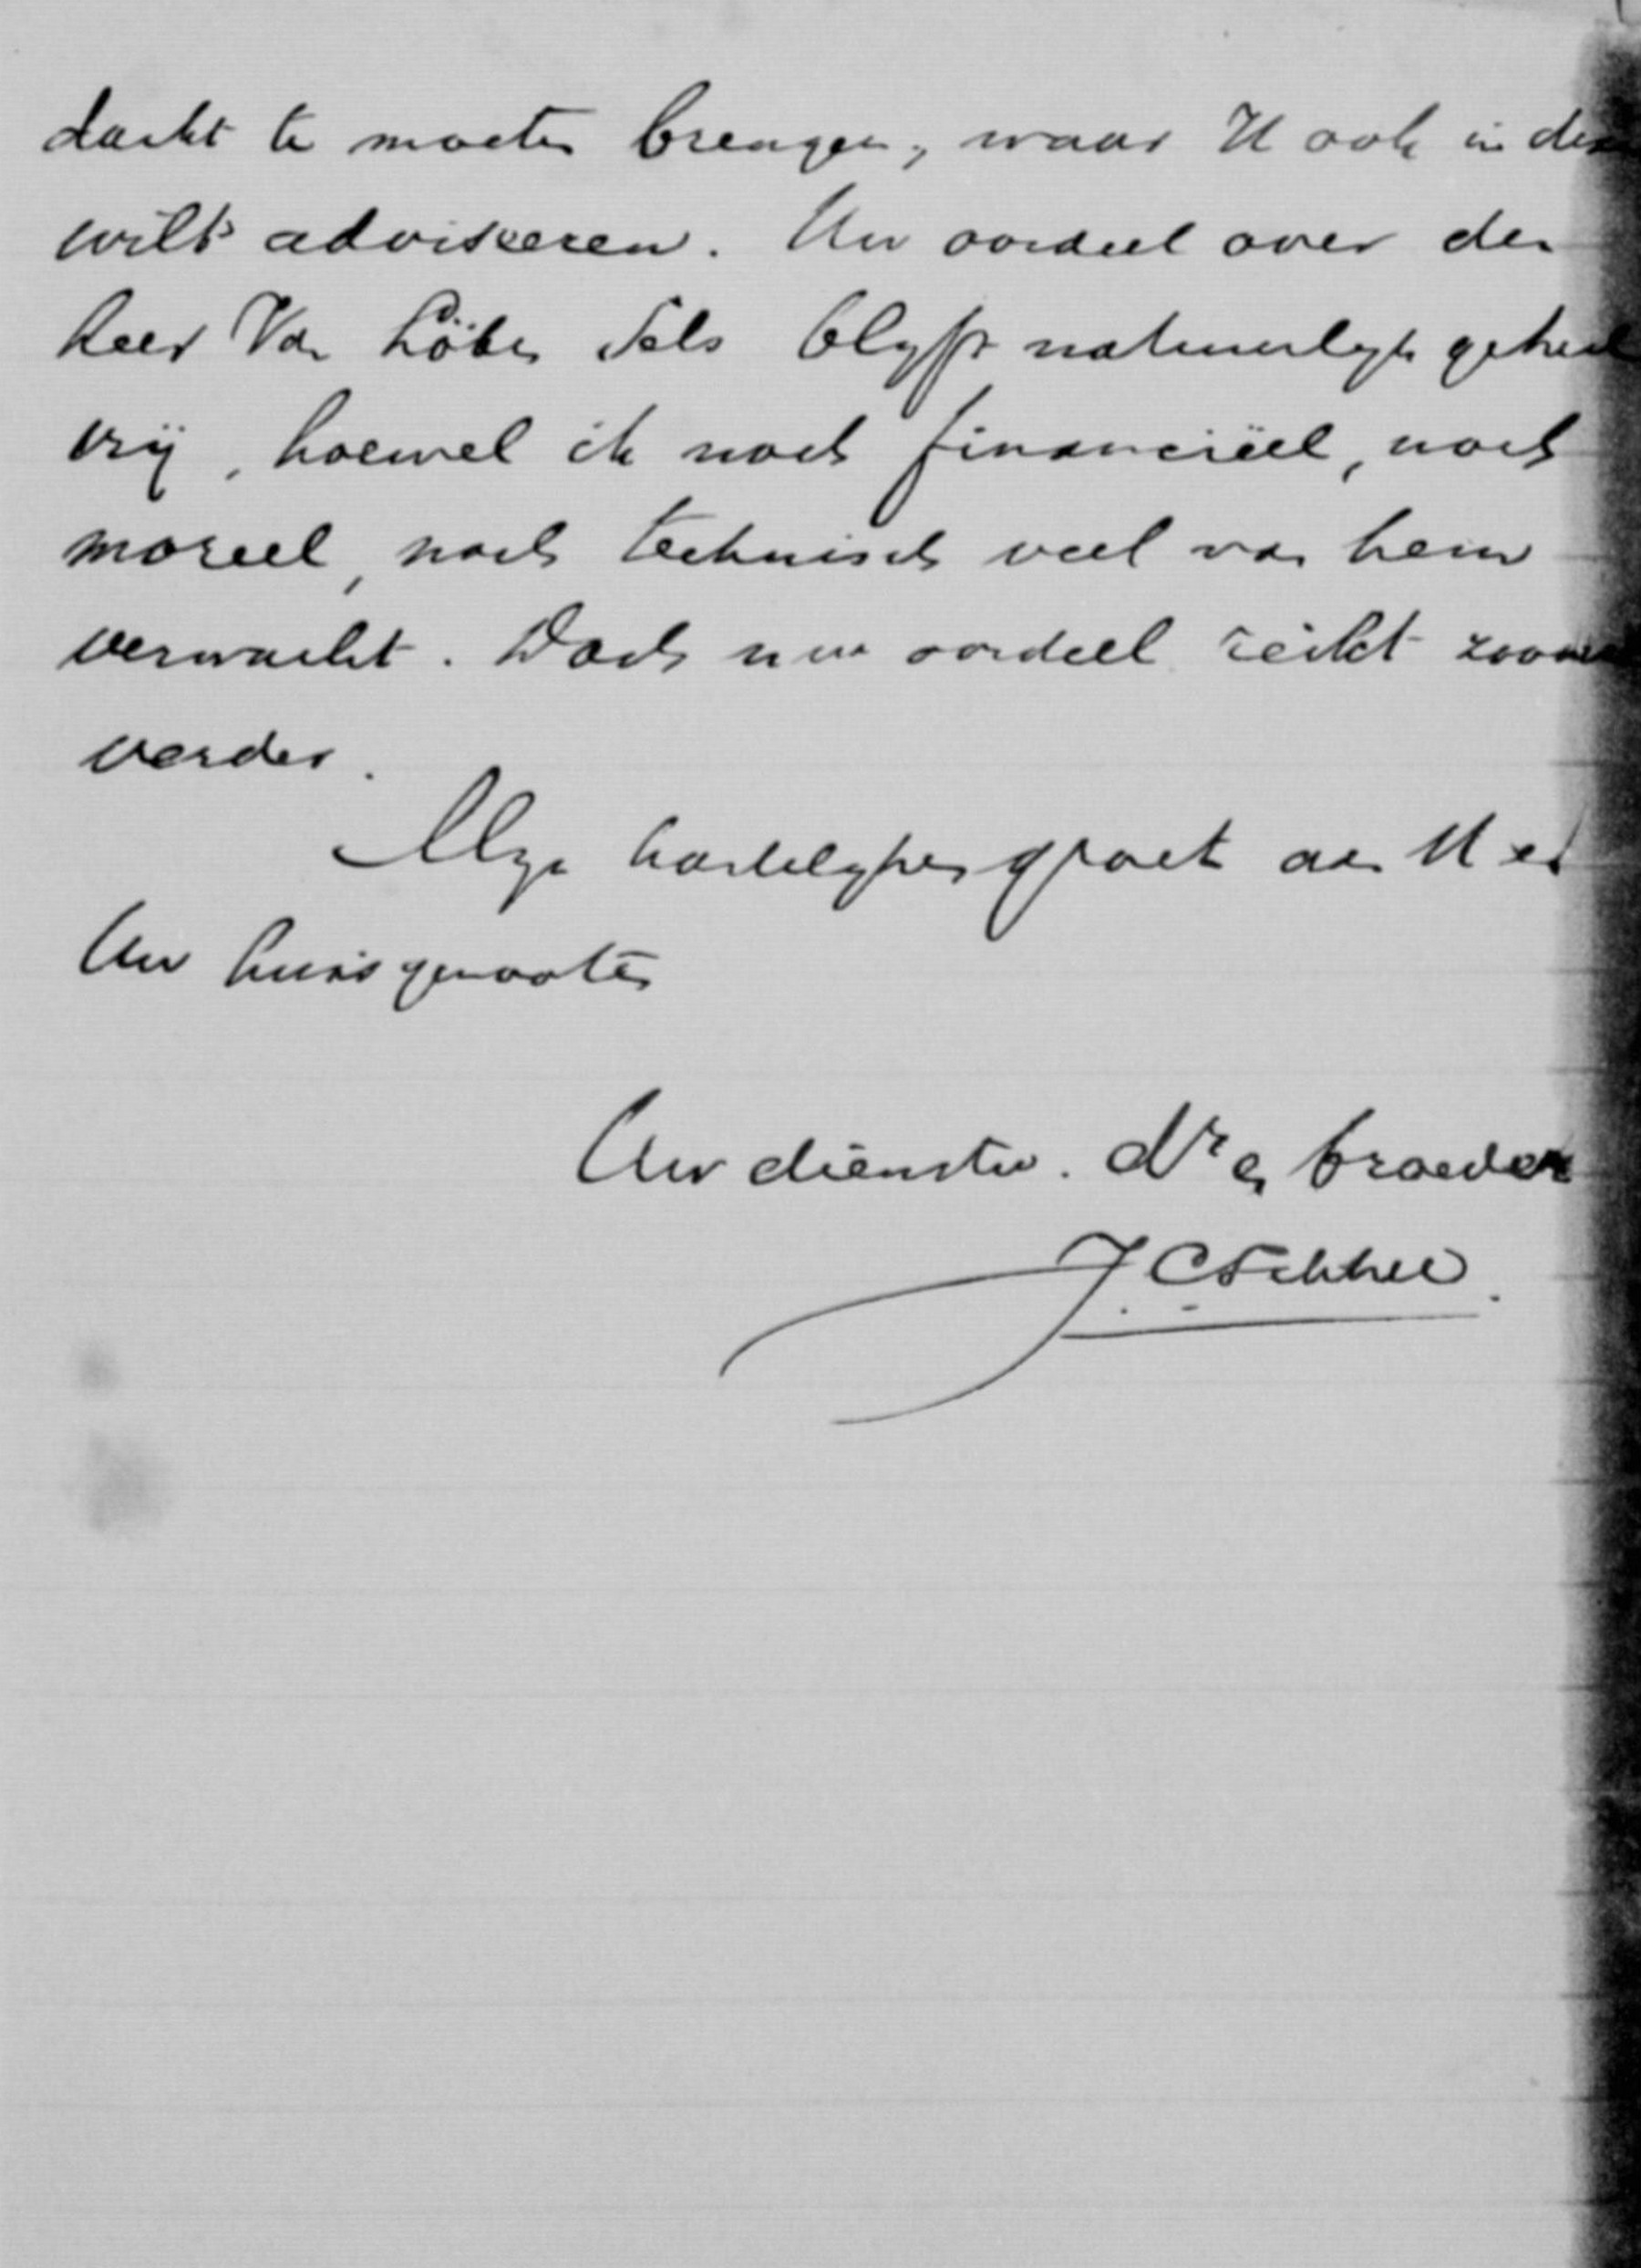 dacht te moeten brengen, waar U ook in deze
wilt adviseeren. Uw oordeel over den
heer Van Löben Sels blyft natuurlyk geheel
vrij, hoewel ik noch financiëel, noch
moreel, noch technisch veel van hem
verwacht. Doch uw oordeel reikt zooveel
verder.
Myn hartelyken groet aan U en
Uw huisgenooten
Uw dienstw. dr en broeder
J. C. Sikkel.